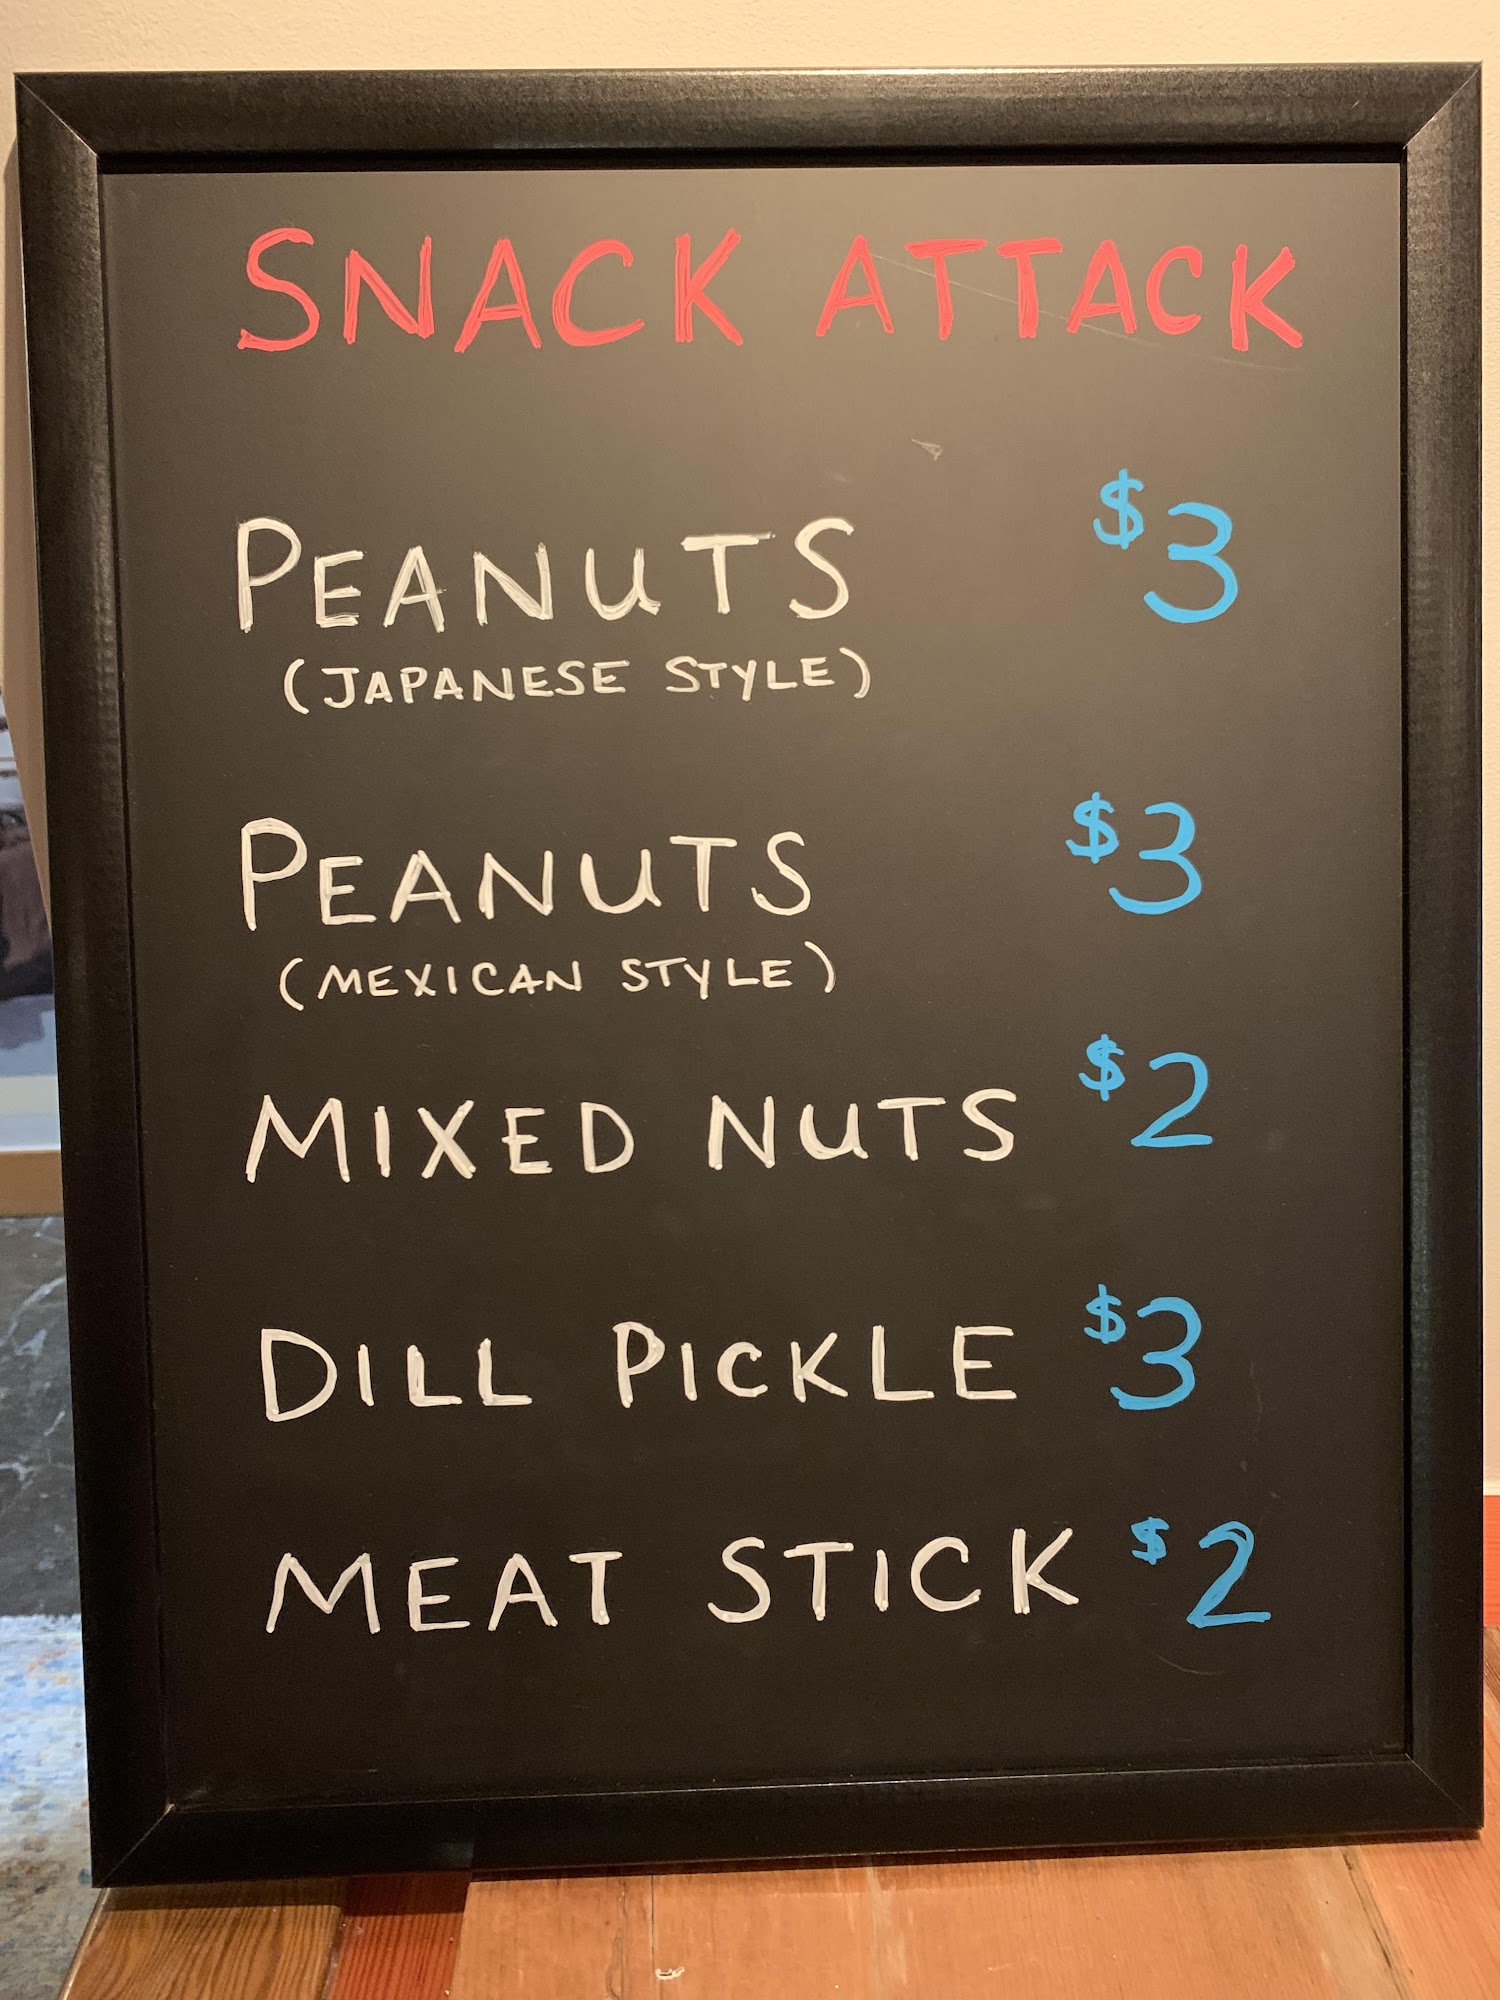 SNACK ATTACK
PEANUTS $3
(JAPANESE STYLE)
PEANUTS $3
(MEXICAN STYLE)
MIXED NUTS $2
DILL PICKLE $3
MEAT STICK $2